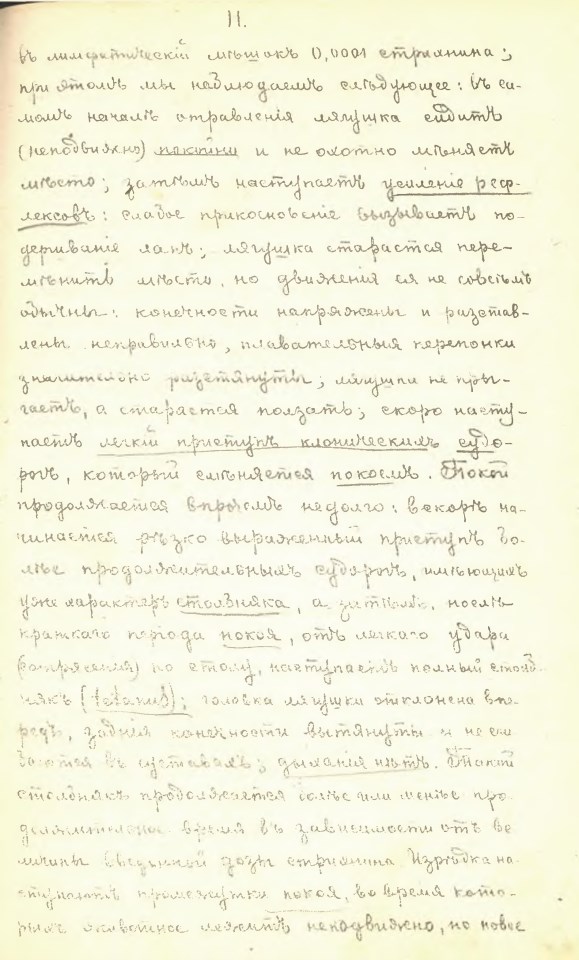 11.
въ лимфатическій мѣшокъ 0,0001 стрихнина;
при этомъ мы наблюдаемъ слѣдующее: въ са-
момъ началѣ отравленія лягушка сидитъ
(неподвижно) покойно и не охотно мѣняетъ
мѣсто; затѣмъ наступаетъ усиленіе реф-
лексовъ: слабое прикосновеніе вызываетъ по-
дергиваніе лапъ; лягушка старается пере-
мѣнить мѣсто, но движенія ея не совсѣмъ
обычны: конечности напряжены и разстав-
лены неправильно, плавательныя перепонки
значительно растянуты; лягушки не пры-
гаетъ, а старается ползать; скоро насту-
паетъ легкій приступъ клоническихъ судо-
рогъ, который смѣняется покоемъ. Покой
продолжается впрочемъ недолго: вскорѣ на-
чинается рѣзко выраженный приступъ бо-
лѣе продолжительныхъ судорогъ, имѣющихъ
уже характеръ столбняка, а затѣмъ, послѣ
краткаго періода покоя, отъ легкаго удара
(сотрясенія) по столу, наступаетъ полный столб-
някъ (tetanus); головка лягушки отклонена впе-
редъ, заднія конечности вытянуты и не сги
баются въ суставахъ; дыханія нѣтъ. Такой
столбнякъ продолжается болѣе или менѣе про-
должительное время въ зависимости отъ ве
личины введенной дозы стрихнина. Изрѣдка на-
ступаютъ промежутки покоя, во время кото-
рыхъ животное лежитъ неподвижно, но новое